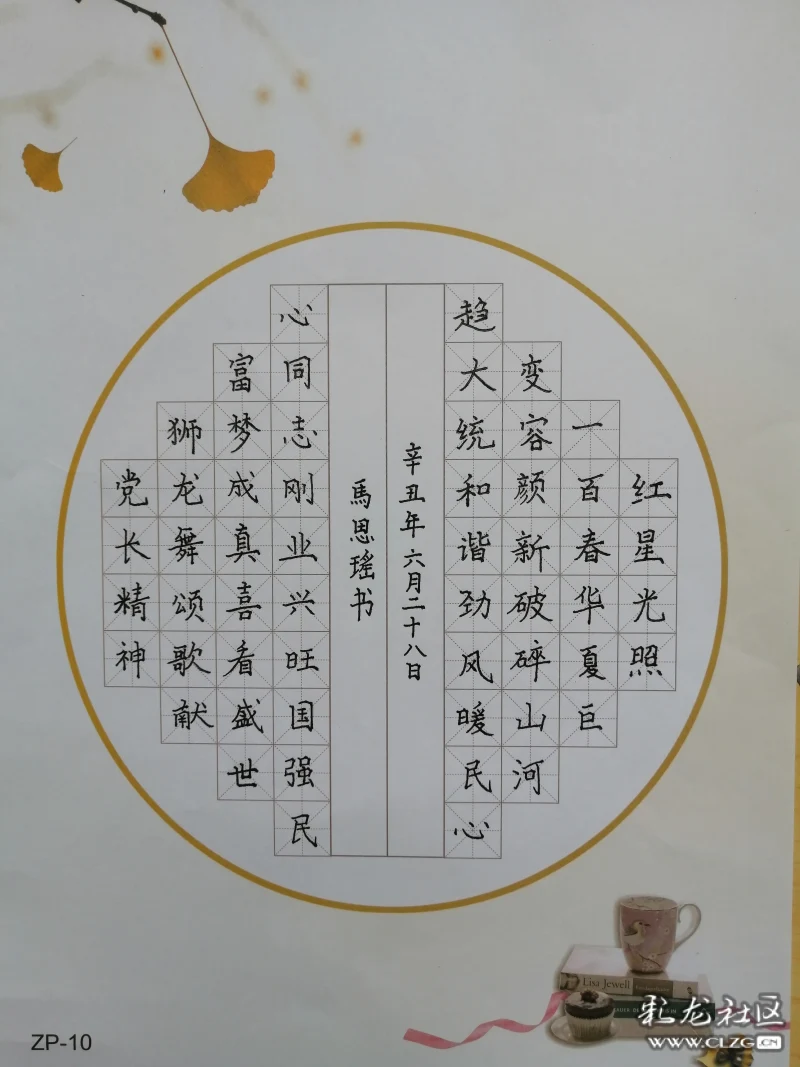 红星光照
一百春华夏巨
变容颜新破碎山河
趋大统和谐劲风暖民心
辛丑年六月二十八日
馬思瑤书
心同志刚业兴旺国强民
富梦成真喜看盛世
狮龙舞颂歌献
党长精神
Lisa Jewell
ZP-10
彩龙社区
WWW.CLZG.CN